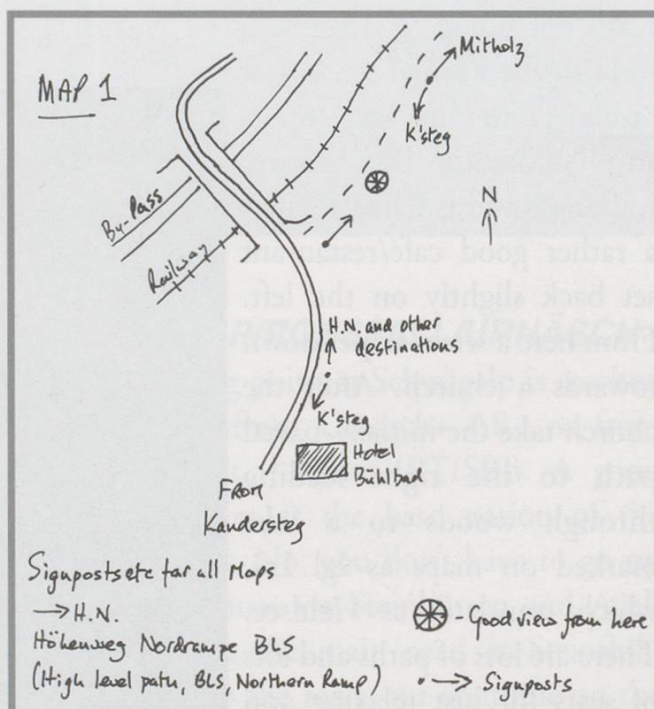 MAP 1
Mitholz
K'steg
By-Pass
Railway
N
H.N. and other
destinations
K'steg
Hotel
Bühlbad
From
Kandersteg
Signposts etc for all Maps
→ H.N.
Höhenweg Nordrampe BLS
(High level path, BLS, Northern Ramp)
- Good view from here
•→ Signposts